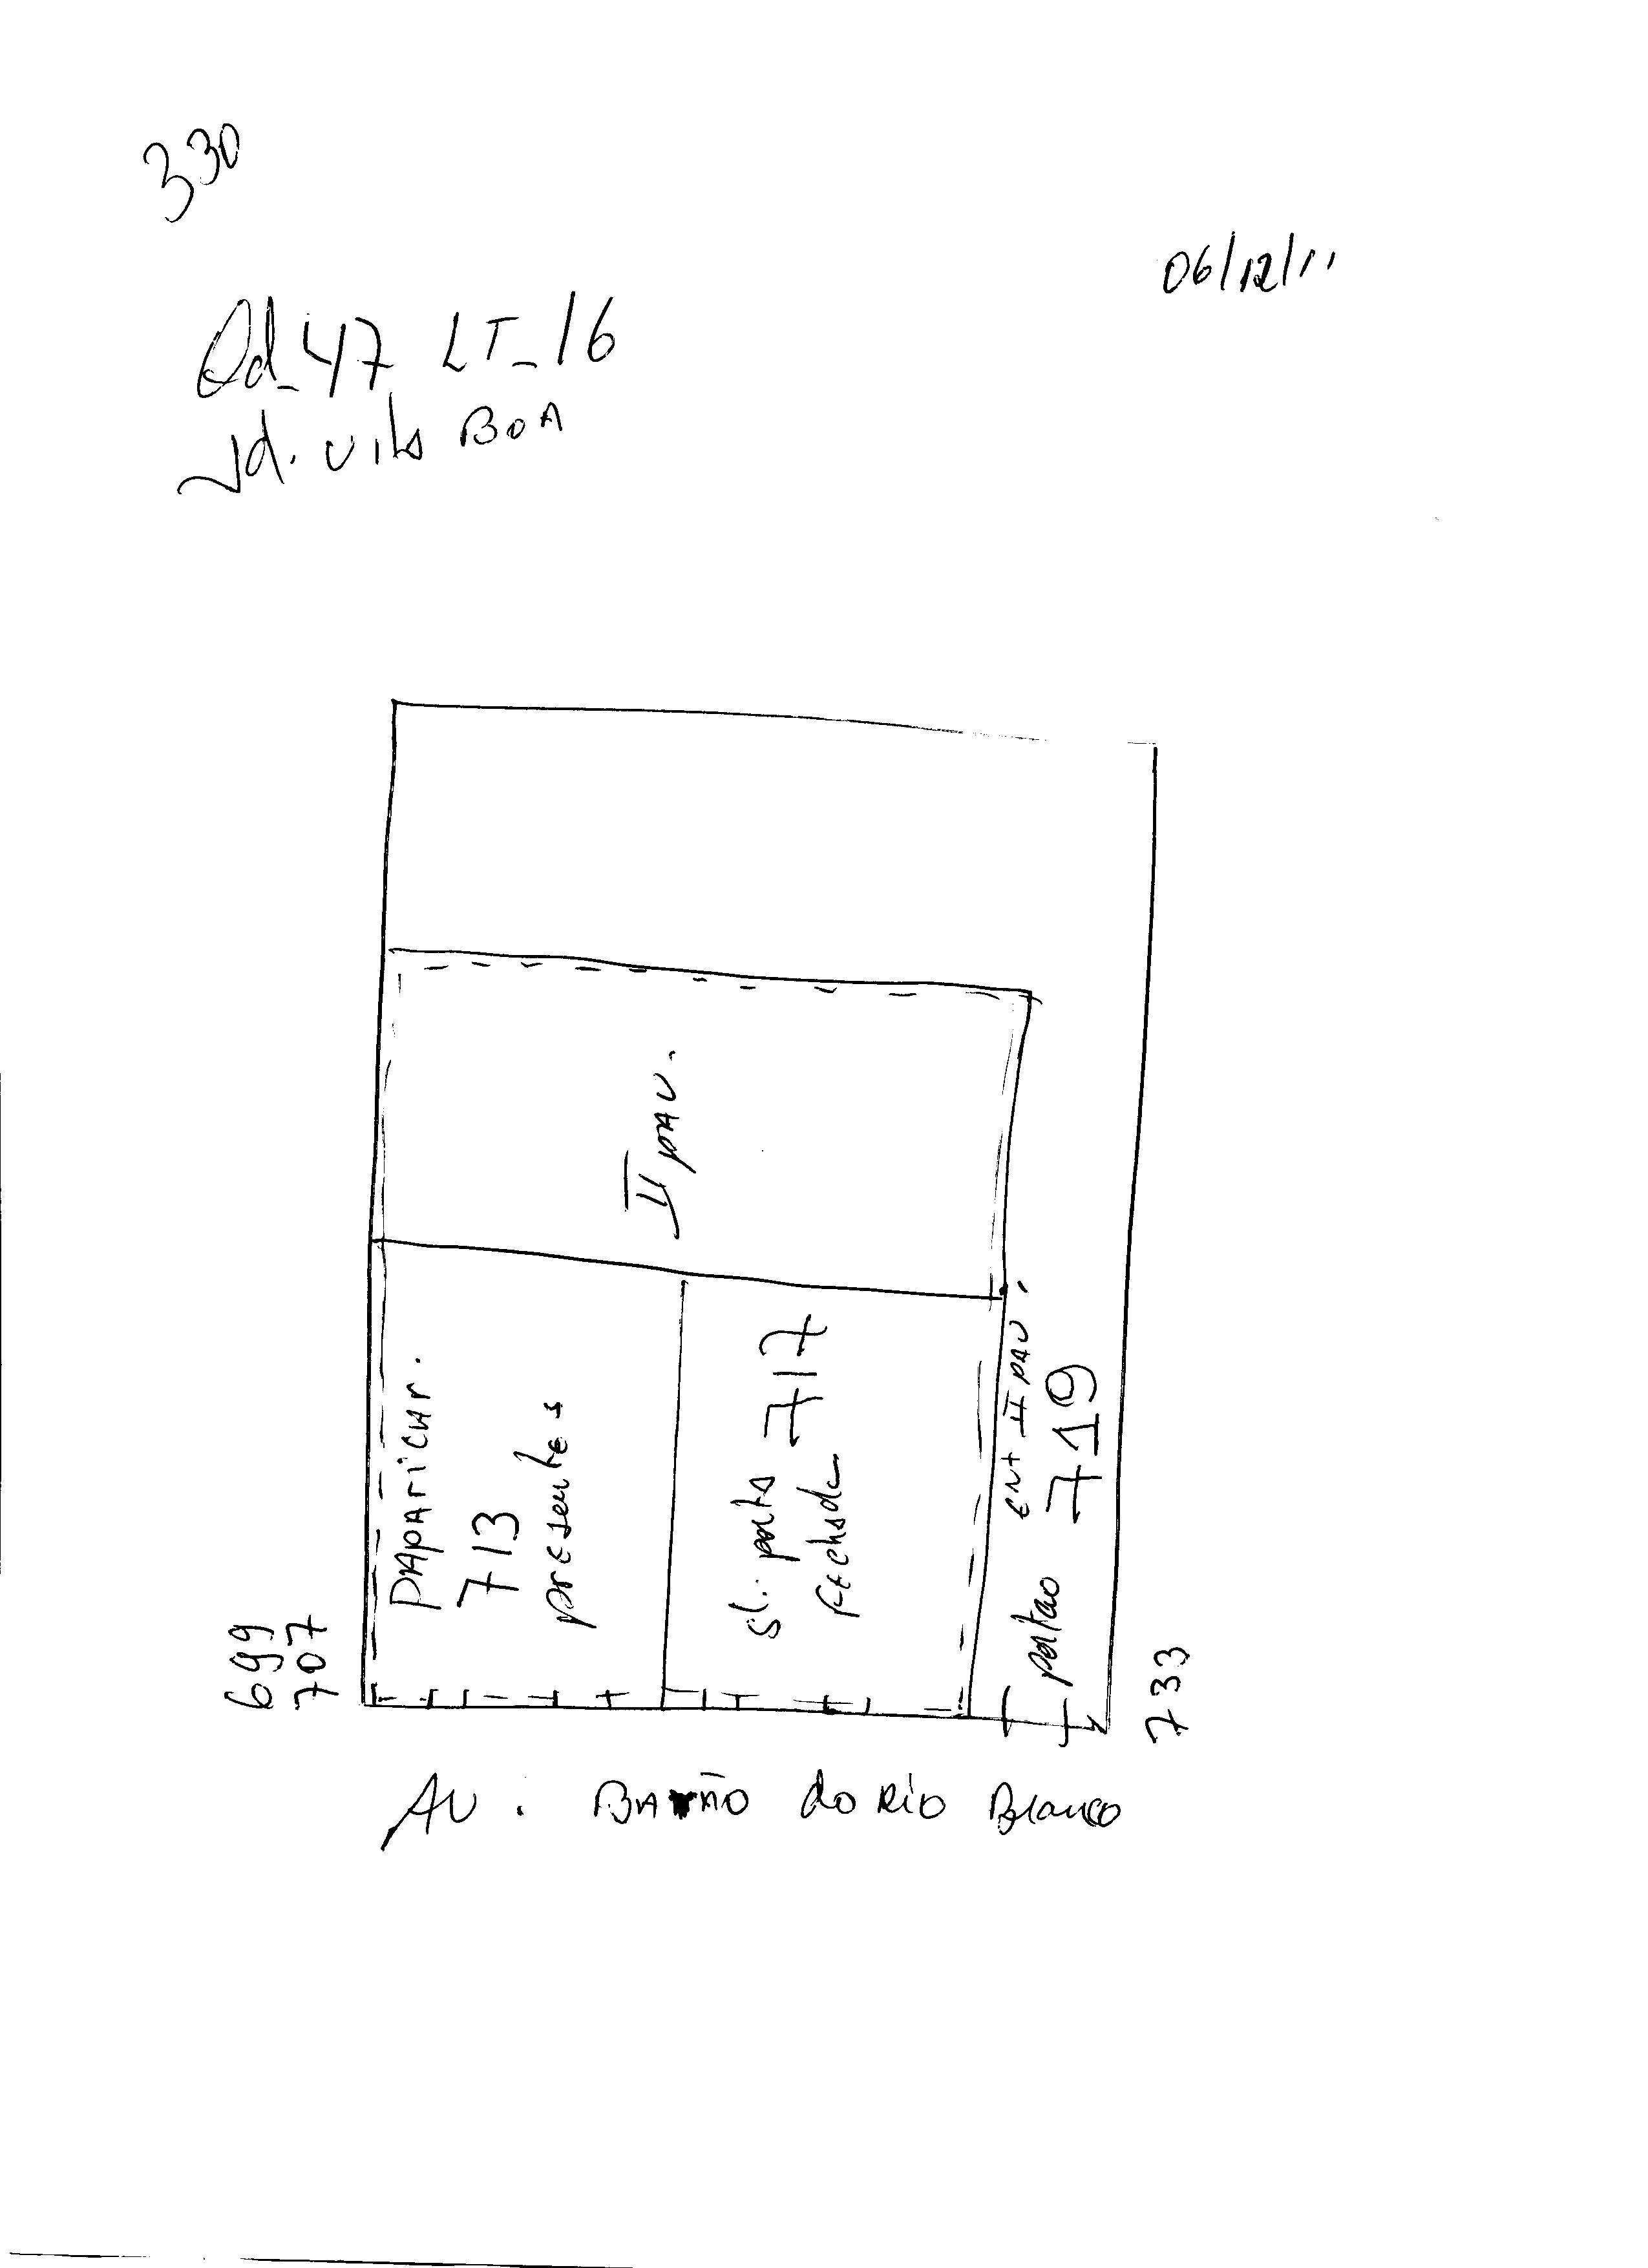 330
06/12/11
Qd_47 LT_16
Jd. vila BOA
II pav.
PAPARICAR.
713
presentes
sl. porta 717
fechada
ent II PAV.
portao 719
699
707
733
AV. BARÃO do Rio Branco